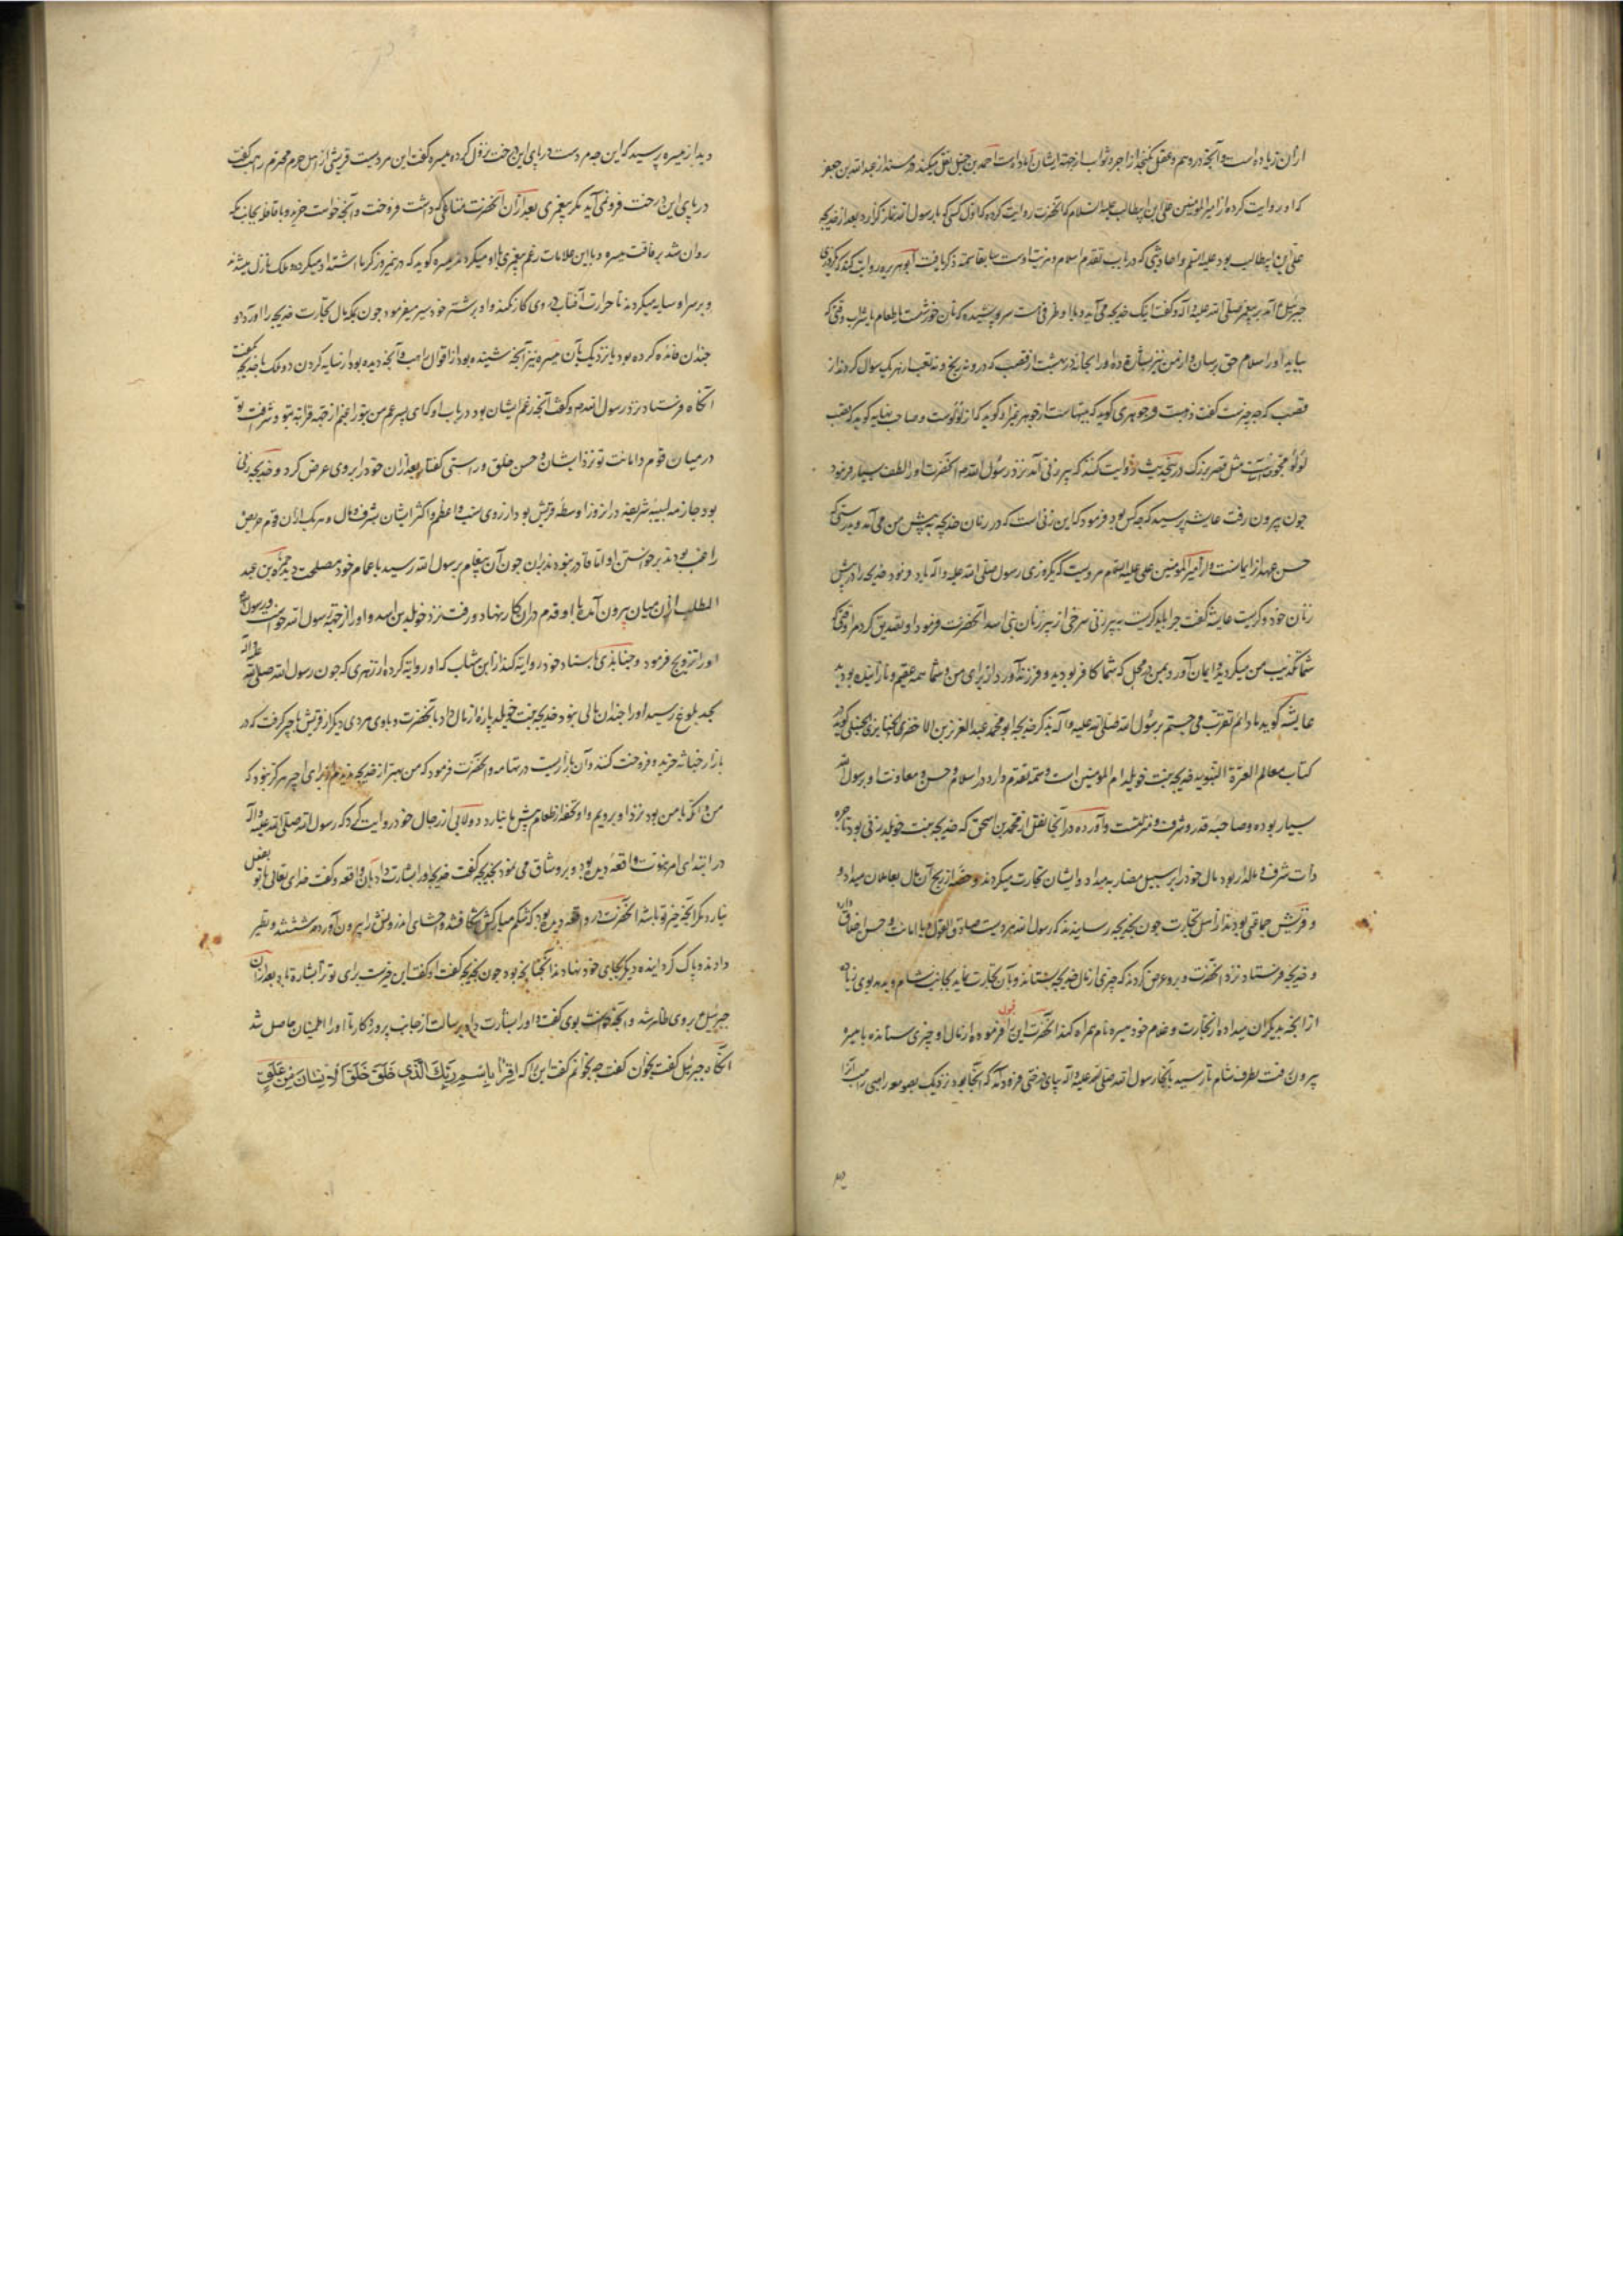 ازان زیاده است و آنچه در وهم و عقل نکنجد از اجر و ثواب از جهة ایشان آماده است احمد بن حنبل نقل میکند در مسند از عبدالله بن جعفر
که او روایت کرده از امیرالمومنین علی بن ابیطالب علیه السلام که آنحضرت روایت کرده که اول کسی که با رسول الله نماز کزارد بعد از خدیجه
علی بن ابیطالب بود علیه السلم و احادیثی که در باب تقدم اسلام و مرتبت اوست سابقا سمة ذکر یافت ابوهریره روایت کند که روزی
جبرئیل آمد بر پیغمبر صلی الله علیه و آله و گفت اینک خدیجه می آید و با او ظرفی است سرپوشیده که نان خورشست یا طعام یا شراب وقتی که
بیاید او را سلام حق برسان و از من نیز بشارة ده او را بخانه در بهشت از قصب که درو نه رنج و نه تعب از هریک سوال کردند از
قصب که چه چیزست گفت ذهبست و جوهری کوید که از جوهر و صاحب نهایه کوید که قصب
لؤلؤ مجوفست مثل قصر بزرگ درین حدیث روایت کنند که پیرزنی آمد نزد رسول الله م آنحضرت او را لطف بسیار فرمود
جون بیرون رفت عایشه پرسید که چه کس بود فرمود که این زنی است که در زمان خدیجه پیش من می آمد و بدرستی که
حسن عهد از ایمانست و از امیرالمومنین علی علیه السلم مرویست که یکروزی رسول صلی الله علیه و آله یاد فرمود خدیجه را در پیش
زنان خود و کریست عایشه گفت چرا باید کریست بر پیرزنی سرخی از پیرزنان بنی اسد آنحضرت فرمود او تصدیق کرد مرا وقتی که
شما تکذیب من میکردید و ایمان آورد بمن در محل که شما کافر بودید و فرزند آورد از برای من و شما همه عقیم و نازاینده بودید
عایشه کوید ما دایم تقرب می جستیم برسول الله صلی الله علیه و آله بذکر خدیجه ابو محمد عبدالعزیز بن الاخضر الجنابذی الحنبلی کوید در
کتاب معالم العترة النبویه خدیجه بنت خویلد ام المومنین است و سمة تقدم دارد در اسلام و حسن معاونت او رسول الله
بسیار بوده و صاحبه قدر و شرف و منزلتست و آورده در آنجا نقل از محمد بن اسحق که خدیجه بنت خویلد زنی بود تاجره
ذات شرف و مالدار بود مال خود را بر سبیل مضاربه میداد و ایشان تجارت میکردند و حصه از ربح آن مال بعاملان میداد و
و قریش جماعتی بودند از اهل تجارت چون بخدیجه رسانیدند که رسول الله مردیست صادق القول و با امانت و حسن اخلاق دارد
و خدیجه فرستاد نزد آنحضرت و برو عرض کردند که چیزی از مال خدیجه بستاند و بآن تجارت نماید بجانب شام و بدهد بوی زیاده
از آنچه بدیکران میداده از تجارت و غلام خود میسره نام همراه کند آنحضرت این را قبول فرموده از مال او چیزی ستانده با میسره
بیرون رفت بطرف شام تا رسید بآنجا رسول الله صلی الله علیه و آله بپای درختی فرود آمد که آنجا بود نزدیک بصومعه راهبی راهب آنرا
دید از میسره پرسید که این چه مردست در پای این درخت نزول کرده میسره گفت این مردیست قریشی از اهل حرم محترم راهب گفت
در پای این درخت فرو نمی آید مکر پیغمبری بعد ازان آنحضرت متاعی که داشت فروخت و آنچه خواست خرید و با قافله بجانب مکه
روان شد برفاقت میسره و با این علامات زعم پیغمبری باو میکرد میسره کوید که در نیمروز کرما اشتداد میکرد دو ملک نازل میشدند
و بر سر او سایه میکردند تا حرارت آفتاب در وی کار نکند و او بر شتر خود سیر میفرمود جون بمکه مال تجارت خدیجه را آورد و
چندان فائده کرده بود یا نزدیک بآن میسره نیز آنچه شنیده بود از اقوال راهب و آنچه دیده بود از سایه کردن دو ملک با خدیجه گفت
آنکاه فرستاد نزد رسول الله م و گفت آنچه زعم ایشان بود در باب او که ای پسر عم من بتو راغبم از جهة قرابة بتو و شرفت تو
در میان قوم و امانت تو نزد ایشان و حسن خلق و راستی گفتار بعد ازان خود را بر وی عرض کرد و خدیجه زنی
بود جازمه لبیبه شریفه دران روز اوسطه قریش بود از روی نسب و اعظم و اکثر ایشان بشرف و مال و هریک ازان قوم حریص
راغب بودند بر خواستن او اما قادر نبودند بران جون آن پیغام برسول الله رسید با عمام خود مصلحت دید حمزة بن عبد
المطلب ازان میان بیرون آمد با او قدم دران کار نهاد و رفت نزد خویلد بن اسد و او را از جهة رسول الله خواست و رسول م
او را تزویج فرمود و جنابذی باسناد خود روایة کند از ابن شهاب که او روایة کرده از زهری که جون رسول الله صلی الله علیه و آله
بحد بلوغ رسید او را چندان مالی نبود خدیجه بنت خویلد پاره از مال داد بآنحضرت و باوی مردی دیکر از قریش باجر کرفت که در
بازار حباشه خریده فروخت کنند و آن بازاریست در تهامه و آنحضرت فرمود که من بهتر از خدیجه ندیدم از برای اجیر هرگز نبود که
من و آنکه با من بود نزد او برویم و او تحفه از طعام پیش ما نیارد و دولابی از رجال خود روایت کرد که رسول الله صلی الله علیه و آله
در ابتدای امر نبوت واقعه دیده بود و برو شاق می نمود بخدیجه گفت خدیجه او را بشارت داد بآن واقعه و گفت خدای تعالی با تو بفعل
نیارد مکر آنچه خیر تو باشد آنحضرت در واقعه دیده بود که شکم مبارکش شکافتند و احشای اندرونش را بیرون آوردند شستند و تطهیر
دادند و پاک کردانیده دیکر بجای خود نهادند آنچنانچه بود جون بخدیجه گفت او گفت این خیرست برای تو ترا بشارة باد بعد ازان
جبرئیل م بروی ظاهر شد و آنچه بوی گفت و او را بشارت داد برسالت از جانب پروردکار تا او را اطمینان حاصل شد
آنکاه جبرئیل گفت بخوان گفت چه بخوانم گفت این که اِقرَأ بِاسْمِ رَبِّكَ الَّذِي خَلَقَ خَلَقَ الْاِنسَانَ مِنْ عَلَقٍ